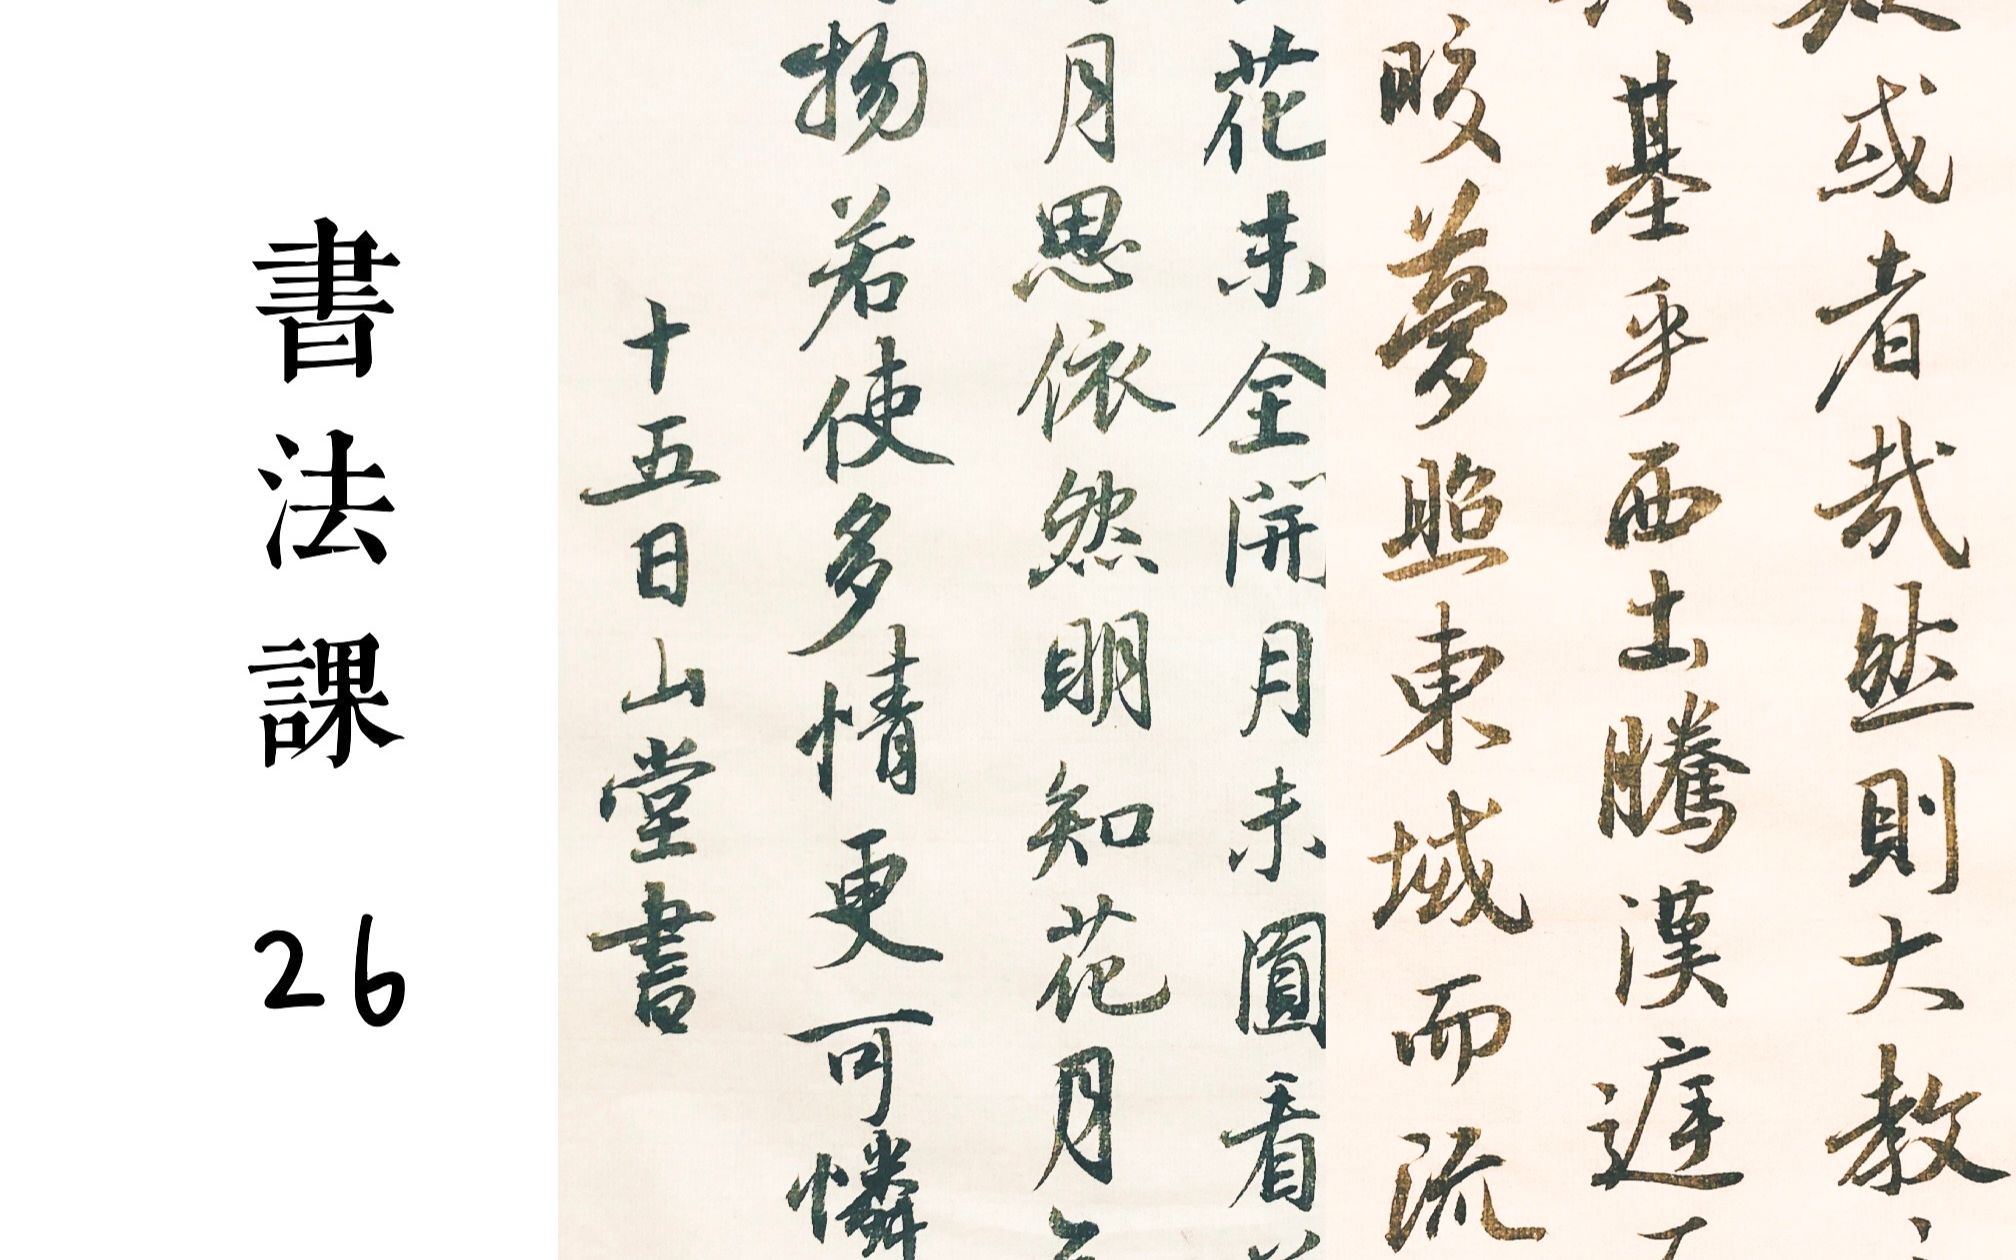 書法課
26
或者哉然則大教
基乎西土騰漢庭
晈夢照東域而流
花未全開月未圓看
月思依然明知花月
物若使多情更可憐
十五日山堂書